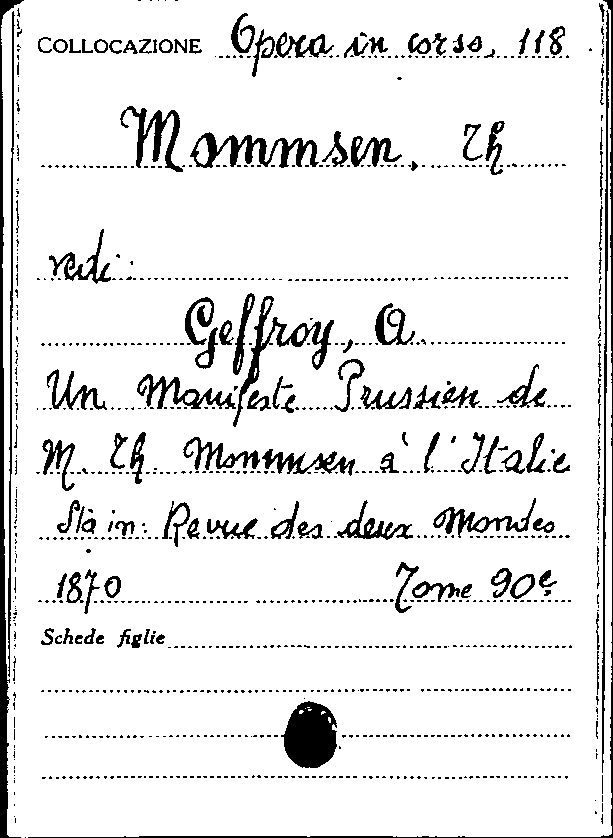 COLLOCAZIONE Opera in corso, 118
Mommsen, Th.
vedi:
Geffroy, A.
Un Manifeste Prussien de
M. Th. Mommsen à l'Italie
Sta in: Revue des deux Mondes
1870 Tome 90e
Schede figlie